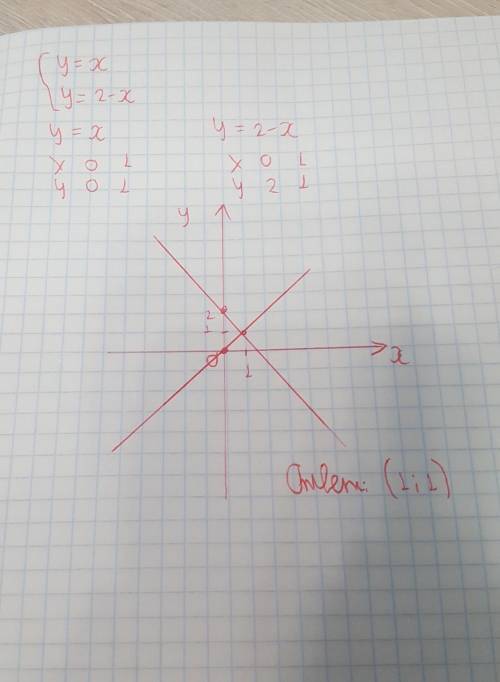 { y = x
y = 2-x
y = x y = 2-x
x 0 1 x 0 1
y 0 1 y 2 1
y
2
1
0 1 x
Ответ: (1; 1)